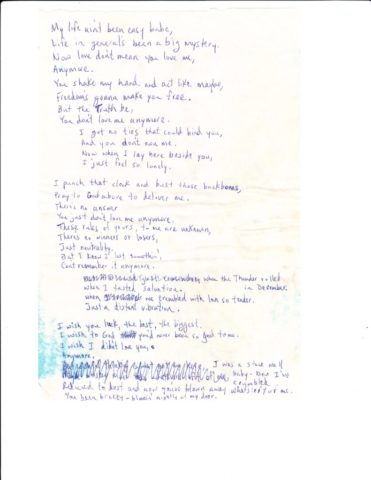 My life ain't been easy babe,
Life in general's been a big mystery.
Now love don't mean you love me,
Anymore.
You shake my hand and act like maybe,
Freedom's gonna make you free.
But the Truth be,
You don't love me anymore.
I got no ties that could bind you,
And you don't now me.
Now when I lay here beside you,
I just feel so lonely.
I punch that clock and bust those backbones,
Pray to God above to deliver me.
Theres no answer
You just don't love me anymore.
These rules of yours, to me are unknown,
Theres no winners or losers,
Just neutrality.
But I know I lost somethin',
Cant remember it anymore.
when the Thunder rolled
in December.
when I tasted Salvation.
when me trembled with love so tender.
Just a distant vibration.
I wish you luck, the best, the biggest.
I wish to God you'd never been so good to me.
I wish I didn't love you,
Anymore.
I was a stone wall
baby - now I've
crumbled
Reduced to dust and now youre blown away whats left of me.
You been breezy - blowin my door.